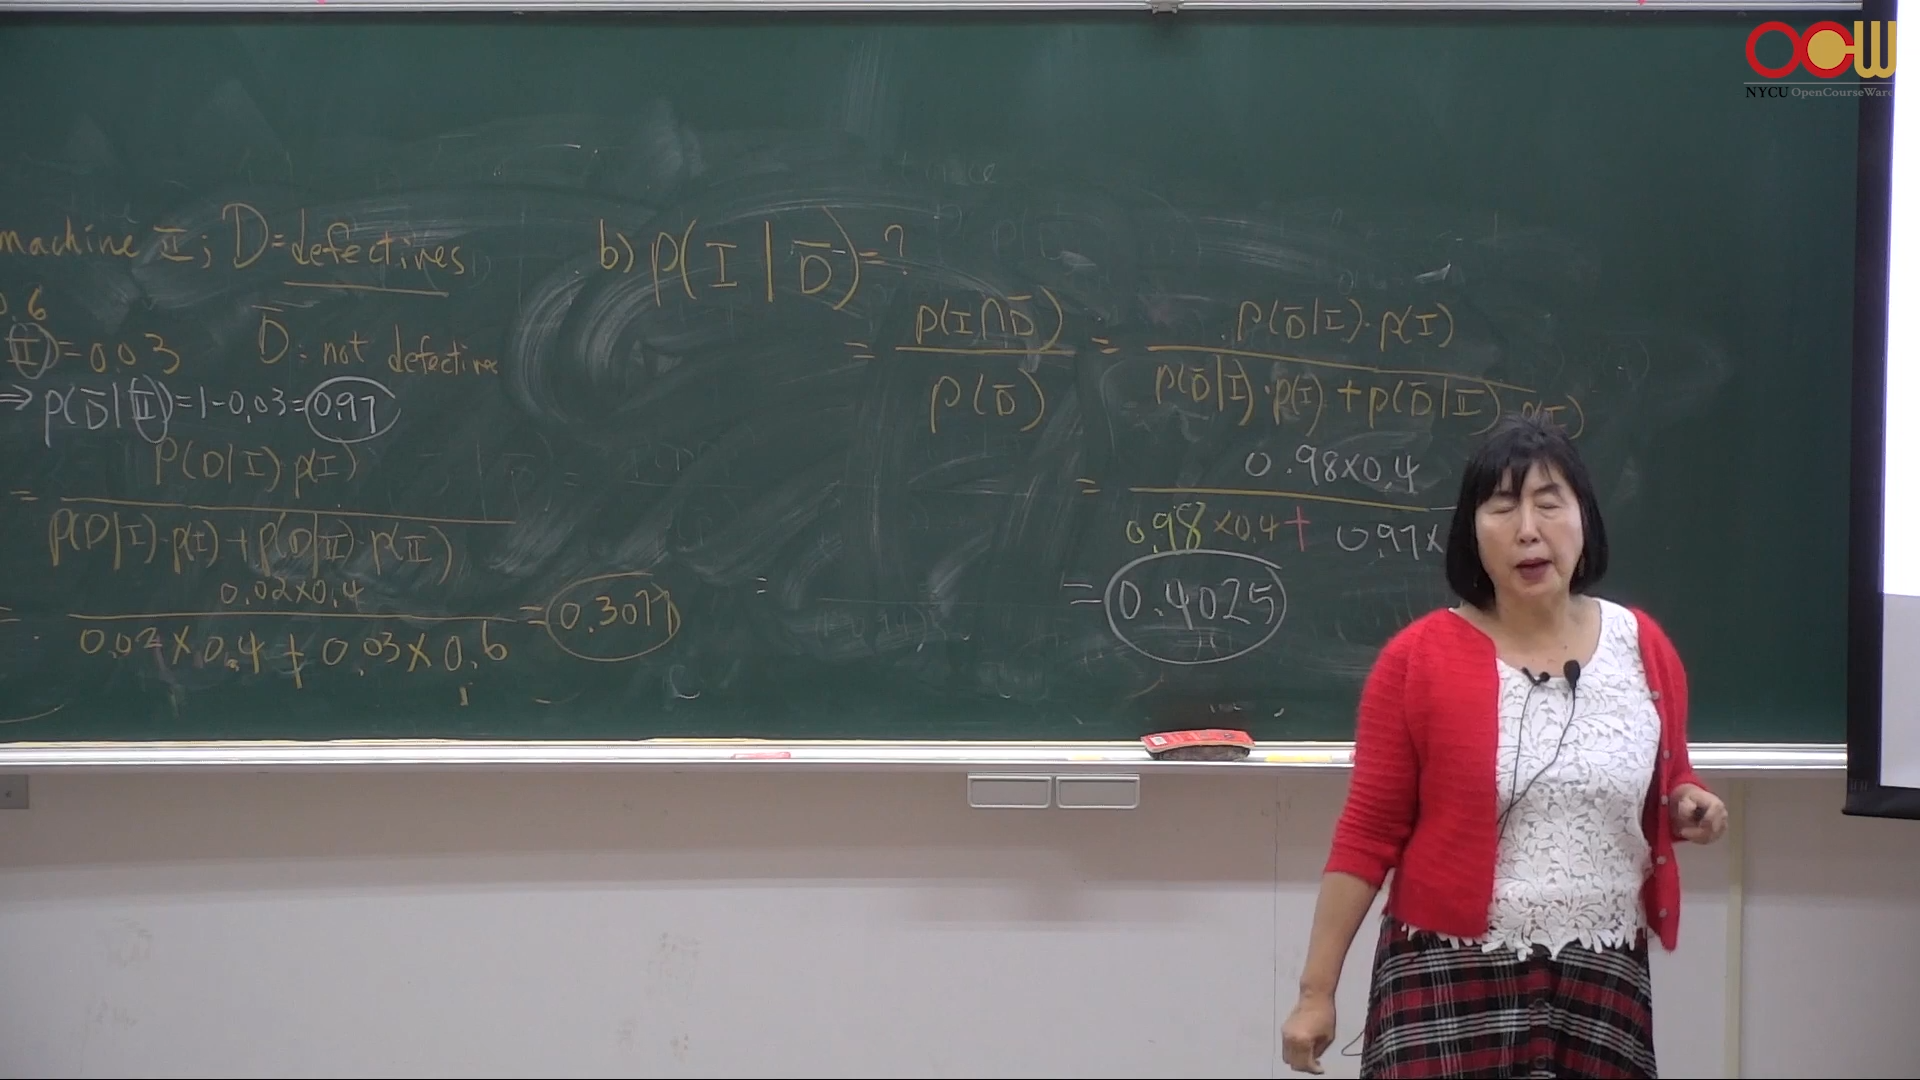 OCW
NYCU OpenCourseWare
machine II; D=defectives
0.6
II)=0.03 D̄: not defective
⇒ P(D̄|II)=1-0.03=0.97
P(D|I) P(I)
=
P(D|I)·P(I)+P(D|II)·P(II)
0.02×0.4
= =0.3077
0.02×0.4+0.03×0.6
b) P(I|D̄)=?
P(I∩D̄) P(D̄|I)·P(I)
= =
P(D̄) P(D̄|I)·P(I)+P(D̄|II)
0.98×0.4
=
0.98×0.4+0.97×
=0.4025